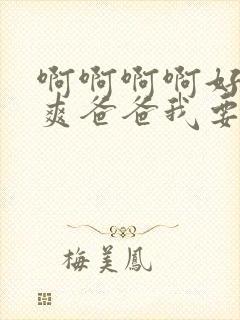 啊啊啊啊好
爽爸爸我要
梅美鳳